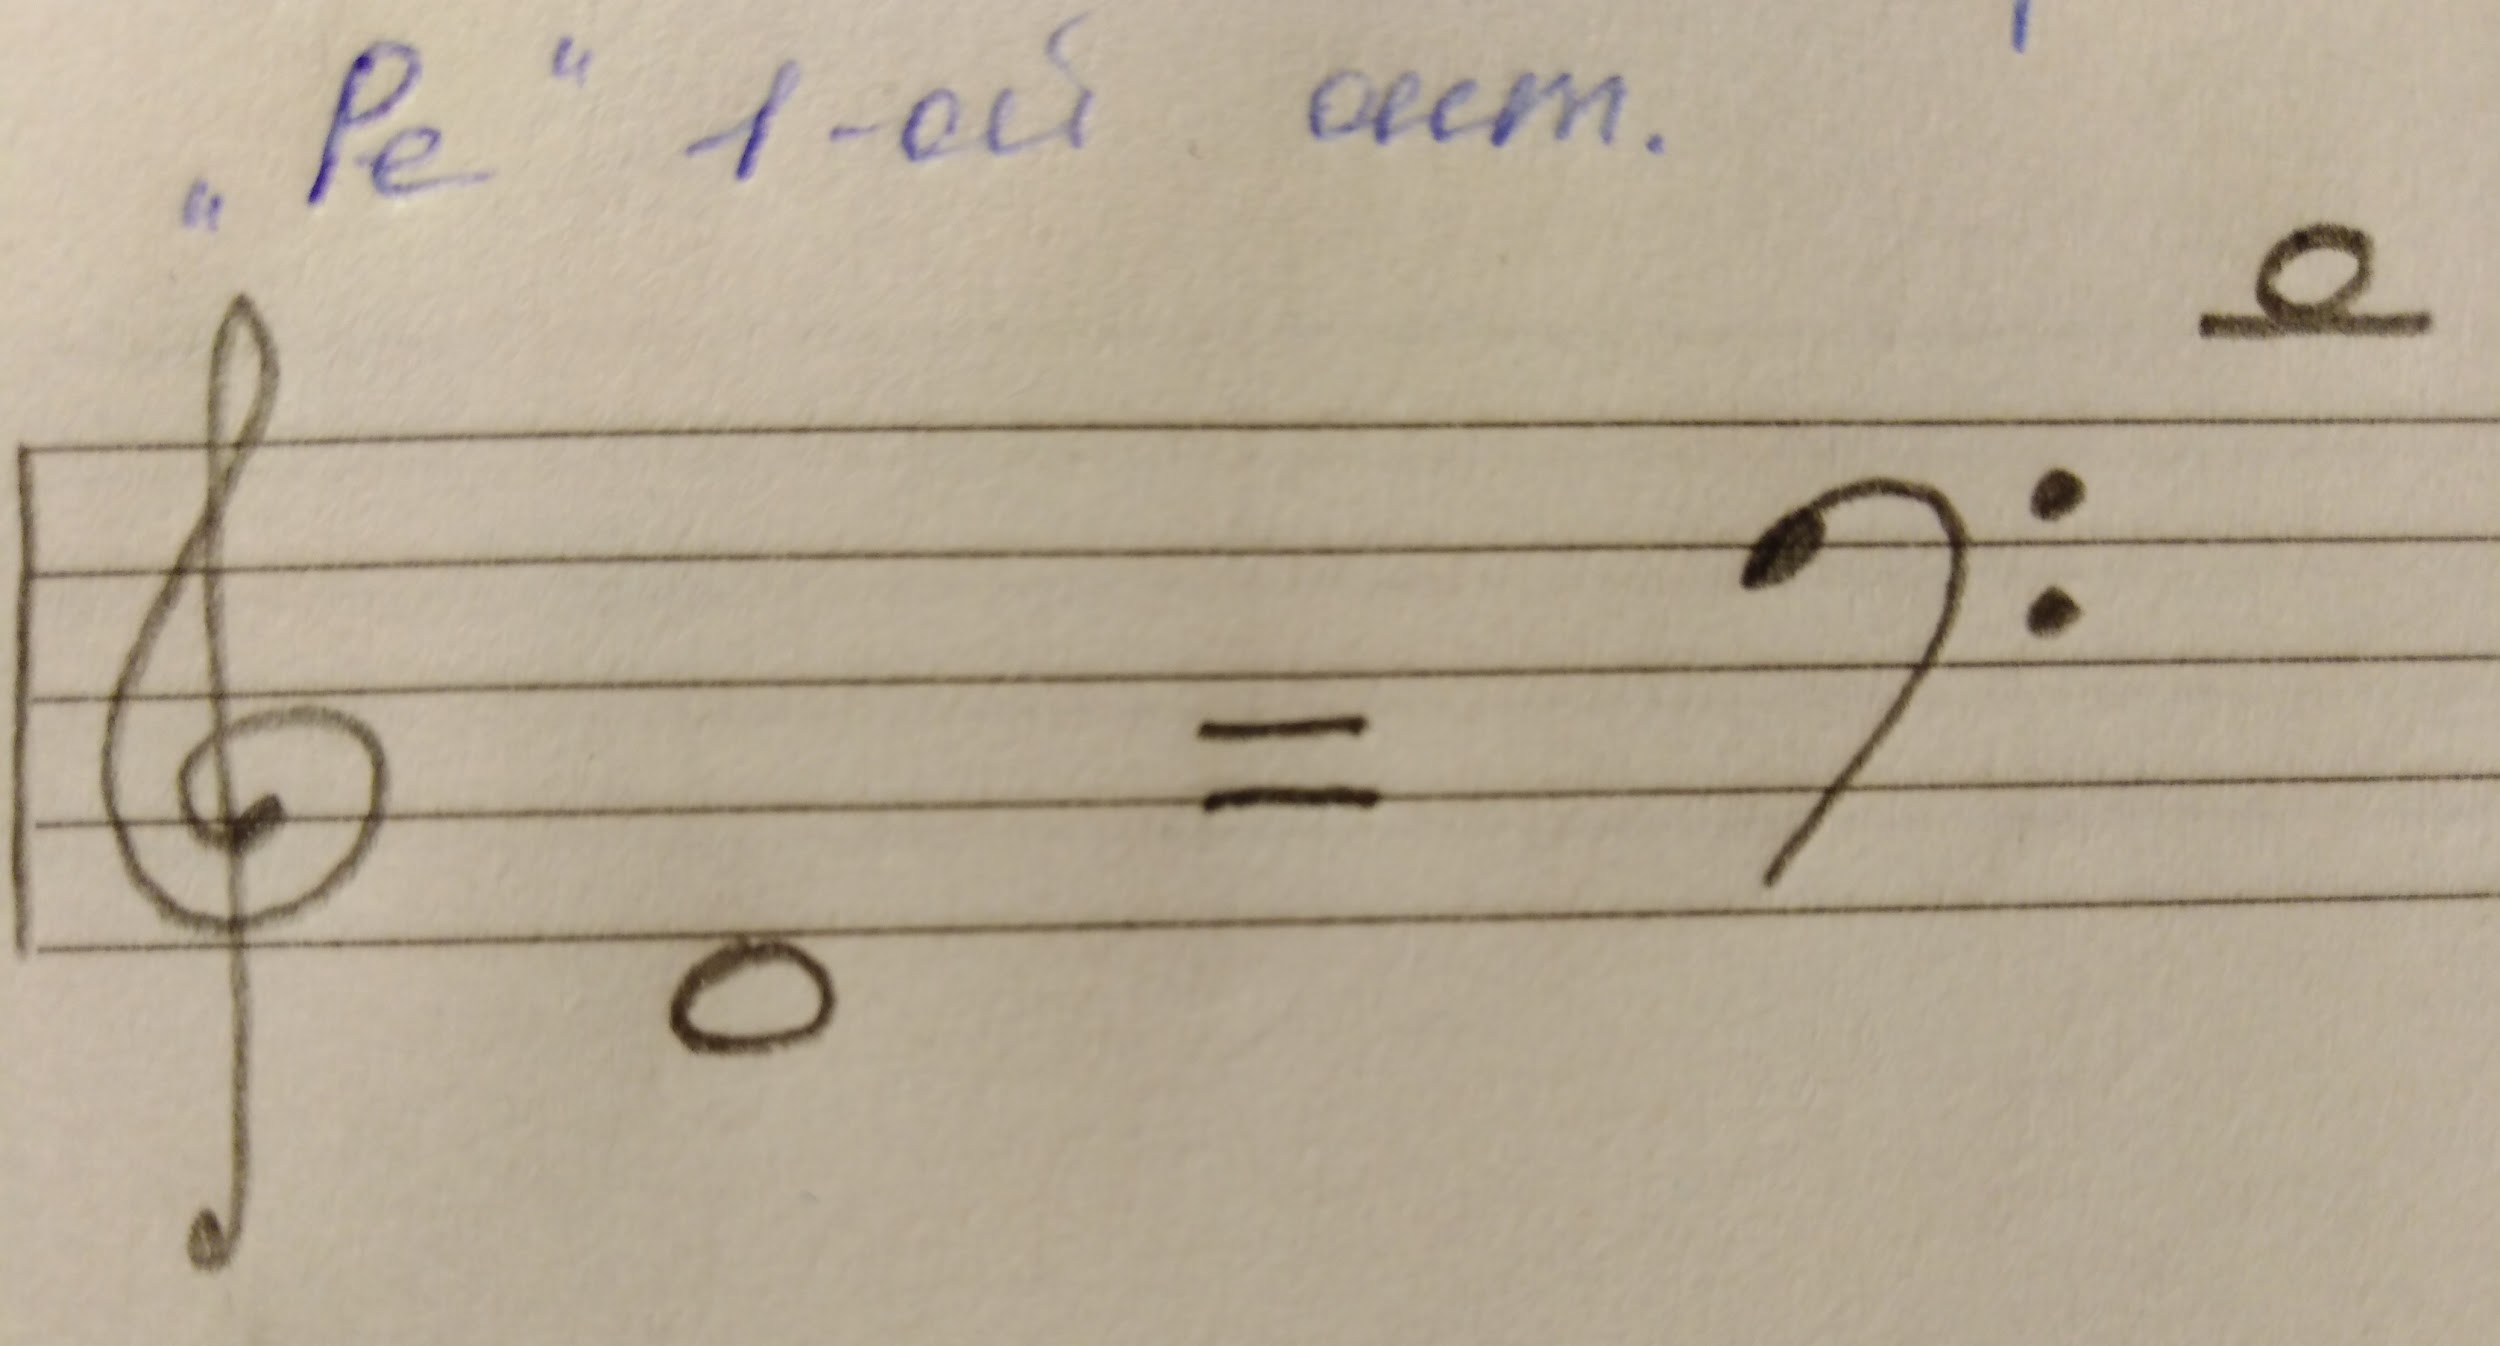 „Ре“ 1-ой окт.